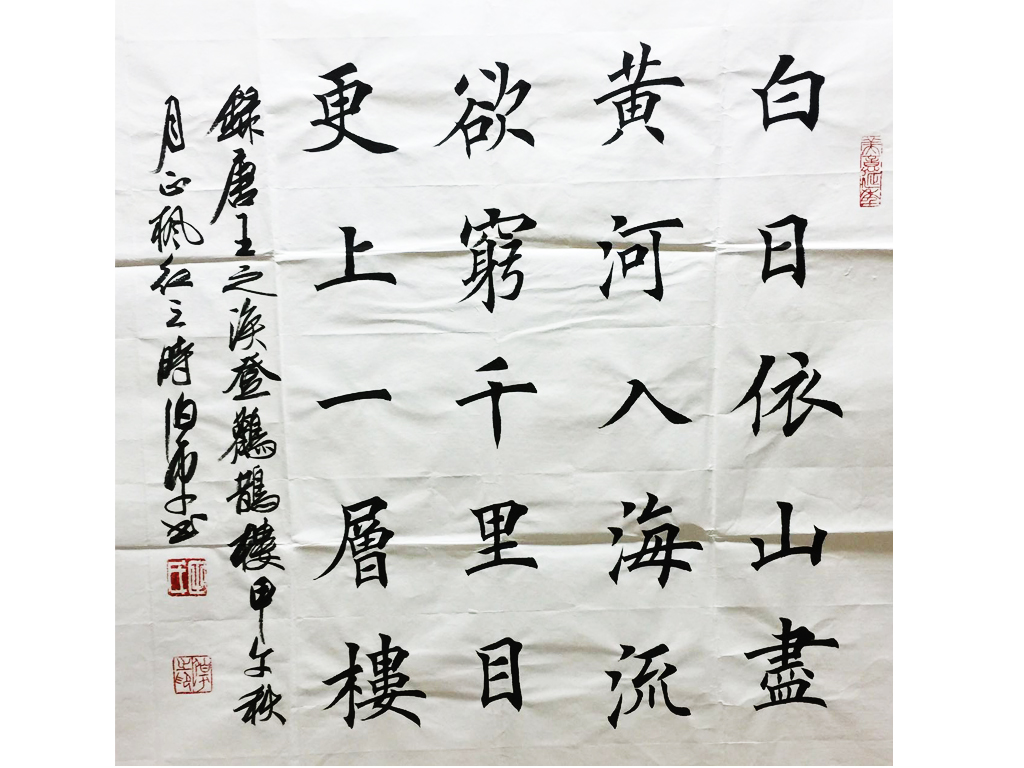 白日依山盡
黃河入海流
欲窮千里目
更上一層樓
錄唐王之渙登鸛鵲樓甲午秋
月正楓紅之時